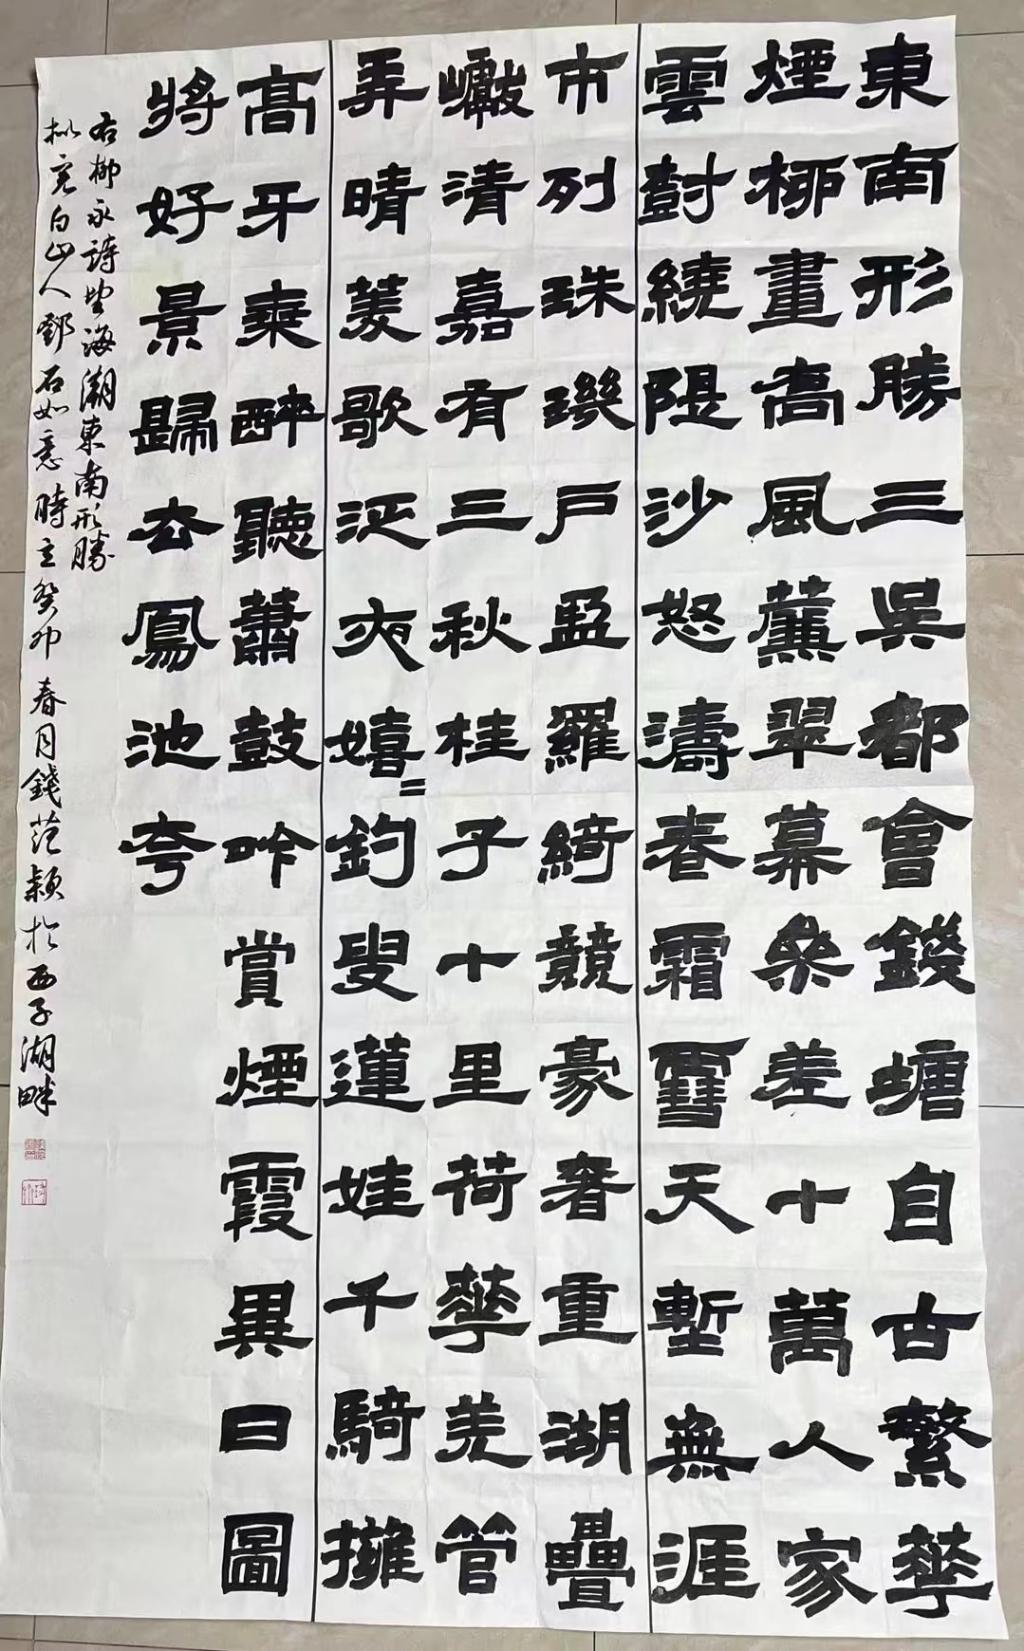 東南形勝三吳都會錢塘自古繁華
煙柳畫喬風簾翠幕參差十萬人家
雲尌繞隄沙怒濤卷霜雪天塹無涯
市列珠璣戶盈羅綺競豪奢重湖疊
巘清嘉有三秋桂子十里荷華羌管
弄晴菱歌泛夜嬉=釣叟蓮娃千騎擁
高牙乘醉聽蕭鼓吟賞煙霞異日圖
將好景歸去鳳池夸
右柳永詩望海潮東南形勝
拟完白山人鄧石如意時在癸卯春月錢范穎於西子湖畔